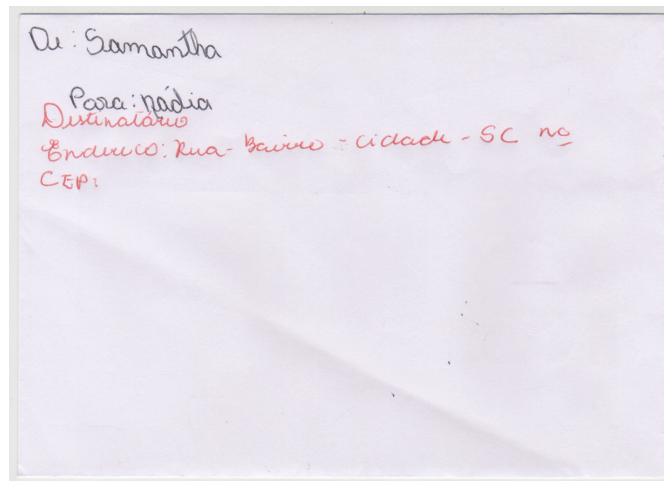 De: Samantha
Para: nádia
Destinatário
Endereco: Rua - Bairro - cidade - SC nº
CEP: